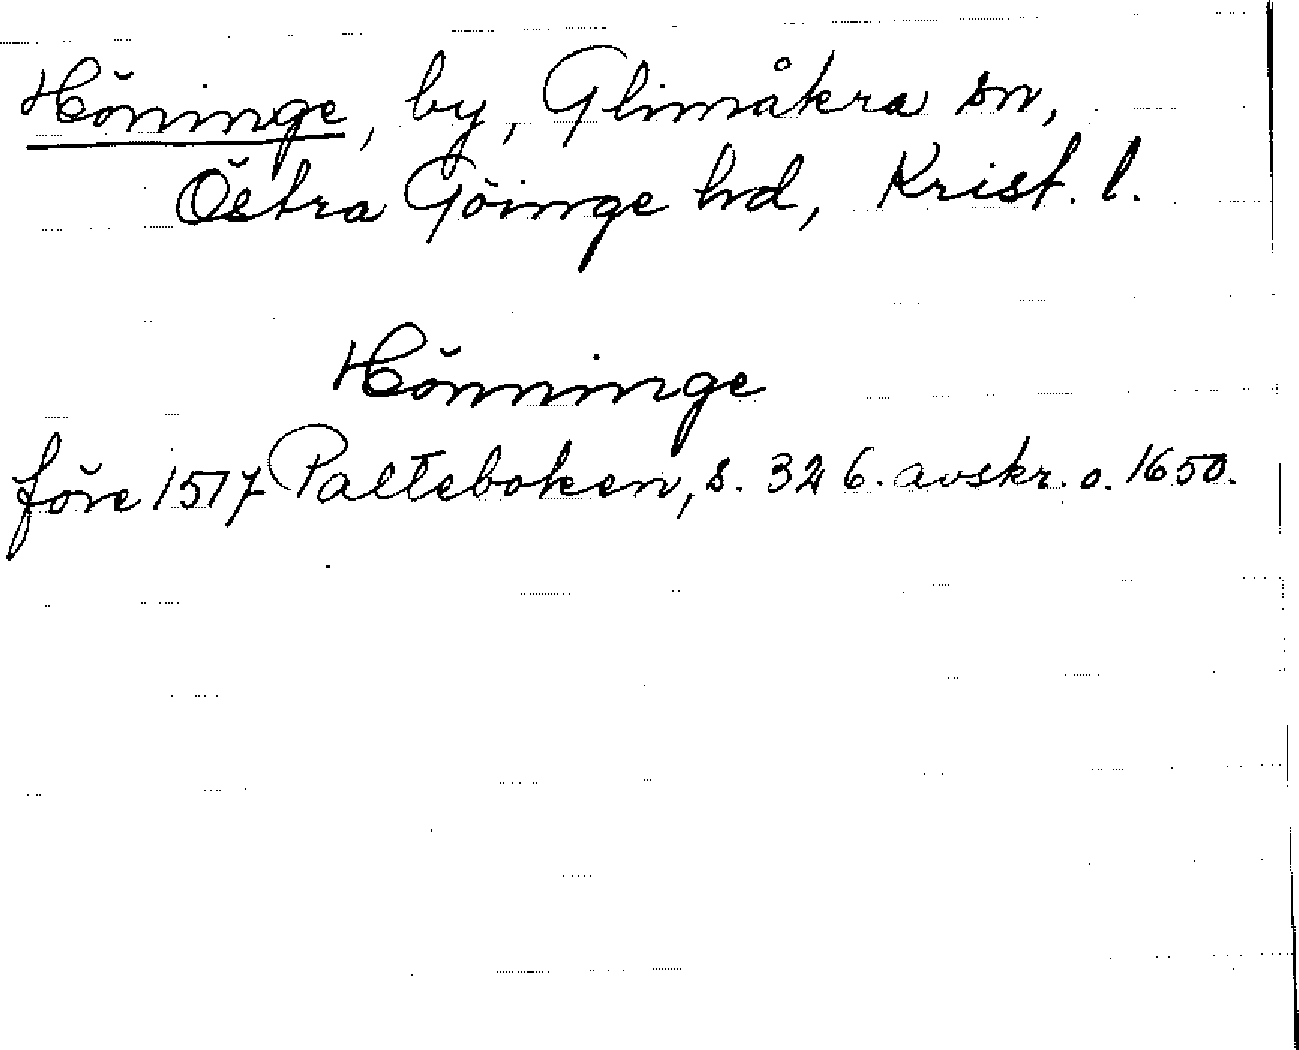 Höninge, by, Glimåkra sn,
Östra Göinge hd, Krist. l.
Hönninge
före 1517 Palteboken, s. 326. avskr. o. 1650.